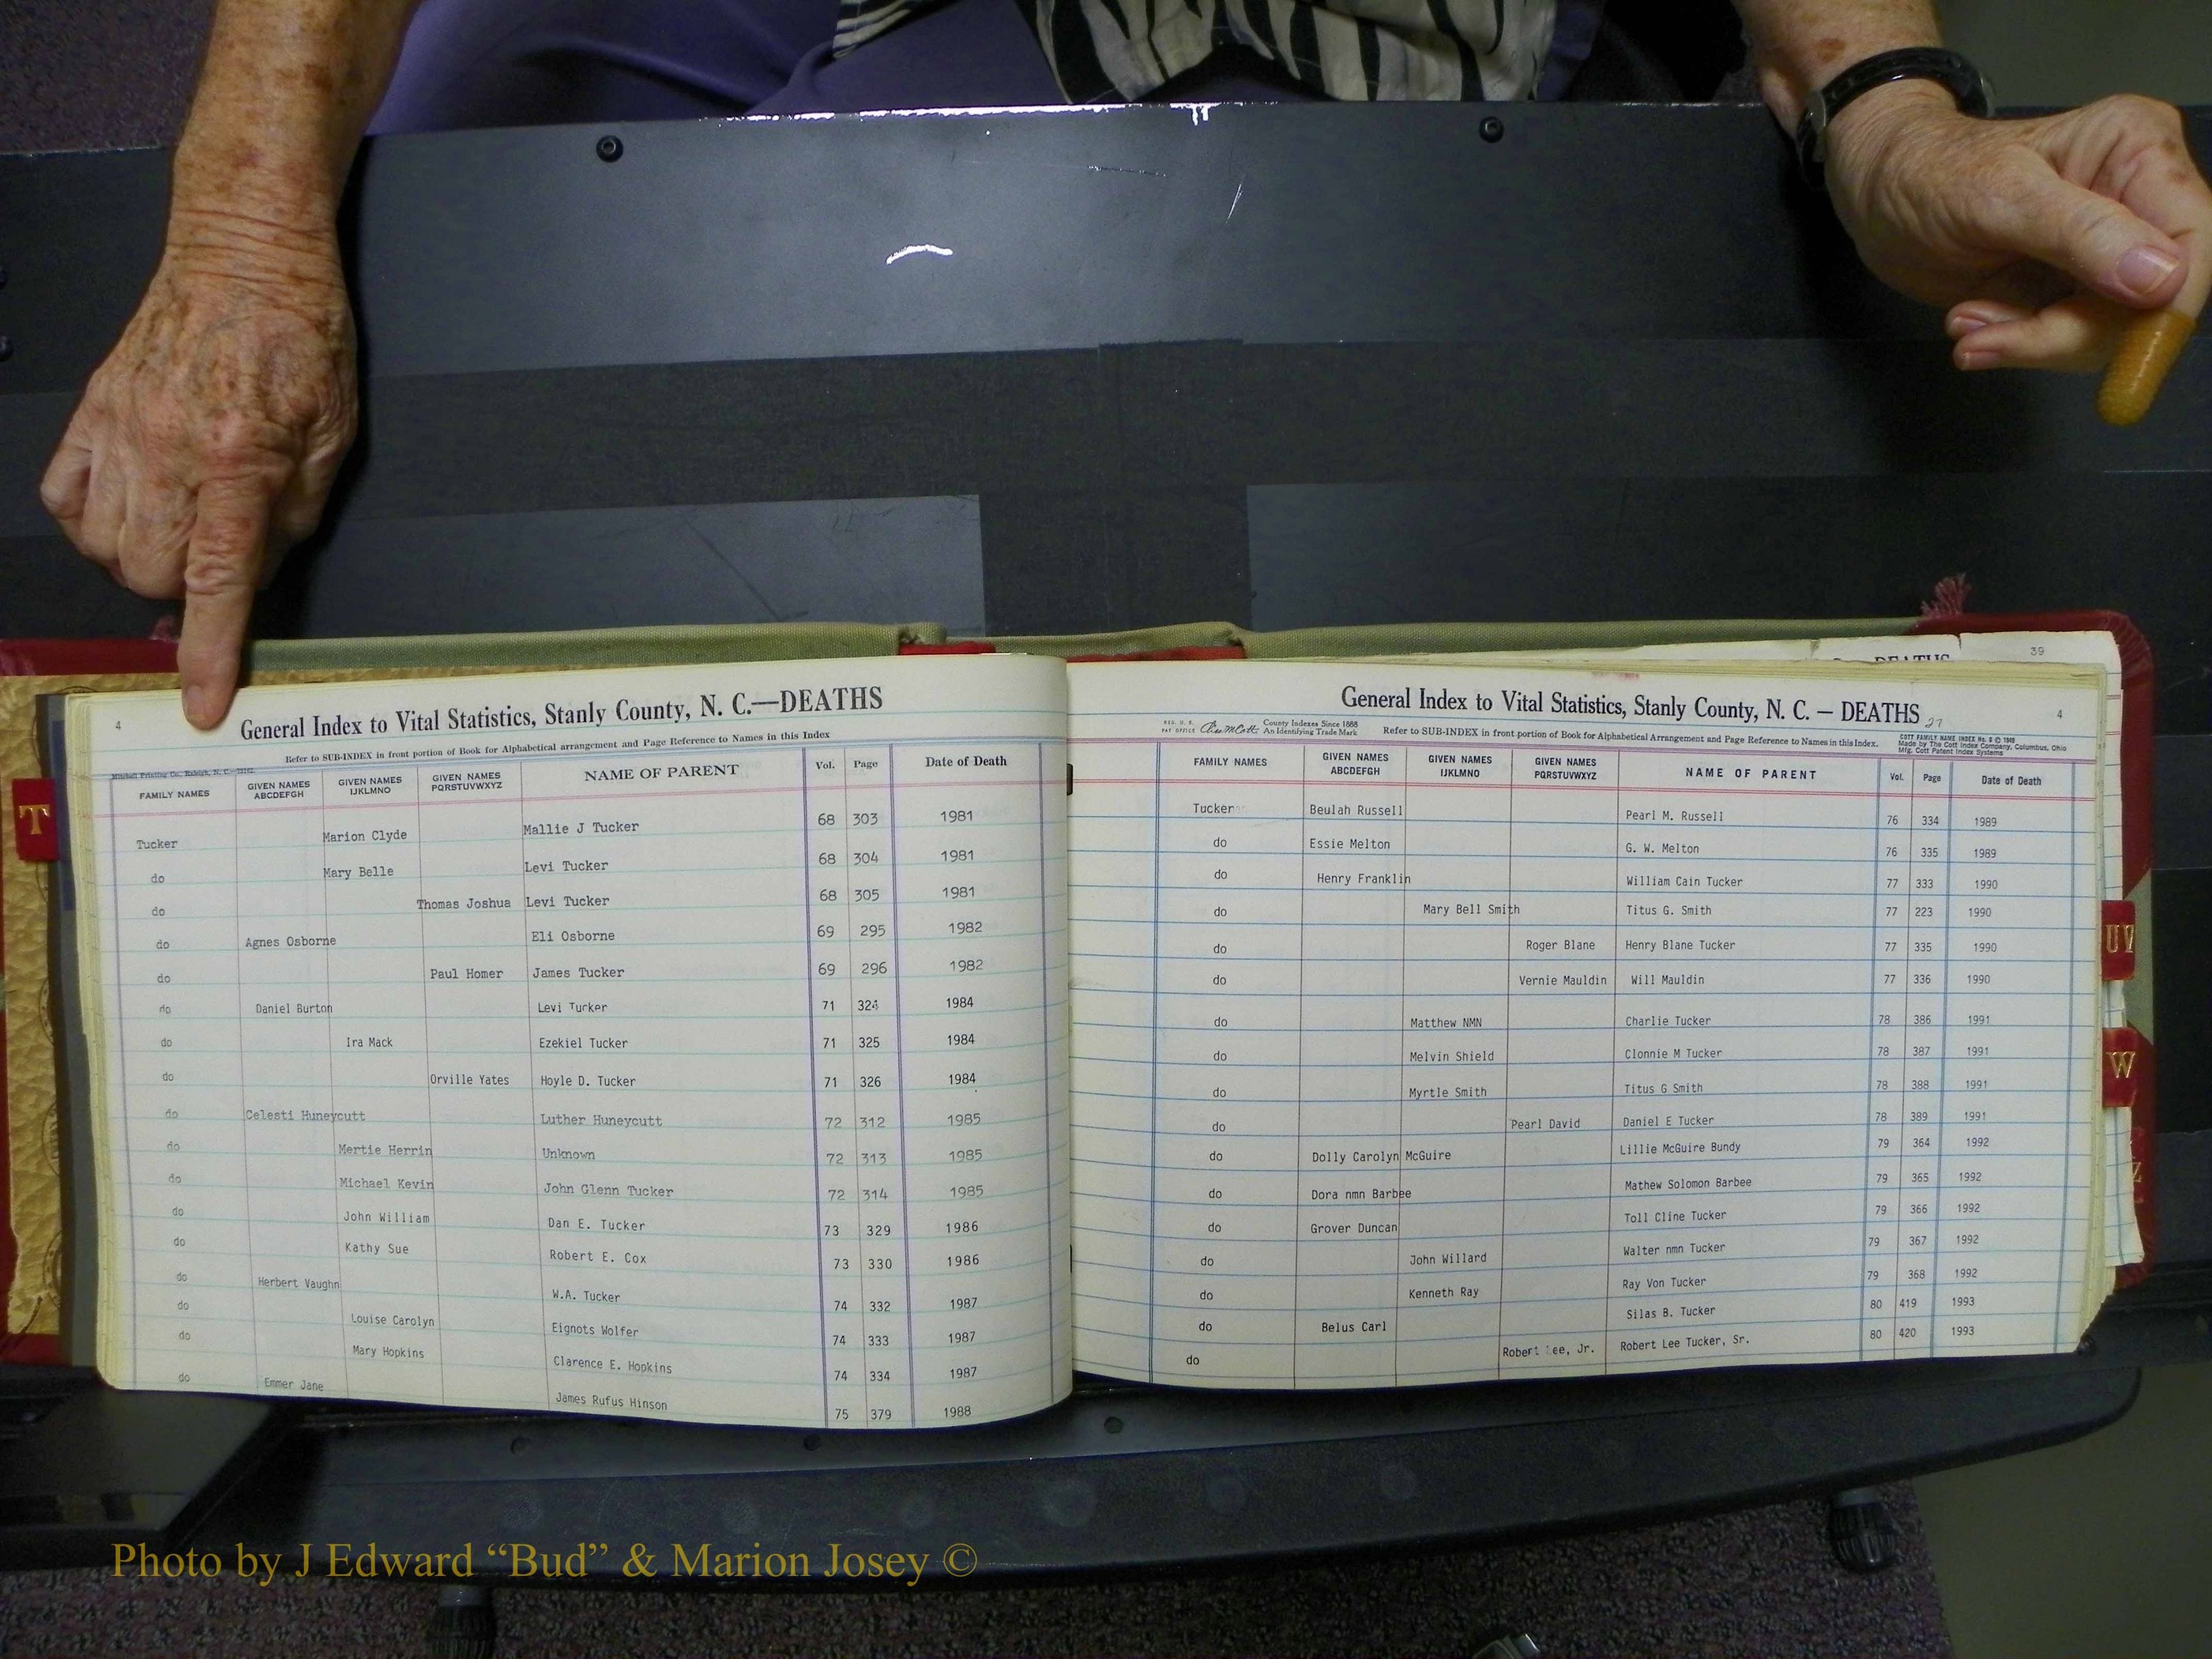 4
General Index to Vital Statistics, Stanly County, N. C.—DEATHS
Refer to SUB-INDEX in front portion of Book for Alphabetical arrangement and Page Reference to Names in this Index
Mitchell Printing Co., Raleigh, N. C.
FAMILY NAMES GIVEN NAMES ABCDEFGH GIVEN NAMES IJKLMNO GIVEN NAMES PQRSTUVWXYZ NAME OF PARENT Vol. Page Date of Death
T
Tucker Marion Clyde Mallie J Tucker 68 303 1981
do Mary Belle Levi Tucker 68 304 1981
do Thomas Joshua Levi Tucker 68 305 1981
do Agnes Osborne Eli Osborne 69 295 1982
do Paul Homer James Tucker 69 296 1982
do Daniel Burton Levi Tucker 71 324 1984
do Ira Mack Ezekiel Tucker 71 325 1984
do Orville Yates Hoyle D. Tucker 71 326 1984
do Celesti Huneycutt Luther Huneycutt 72 312 1985
do Mertie Herrin Unknown 72 313 1985
do Michael Kevin John Glenn Tucker 72 314 1985
do John William Dan E. Tucker 73 329 1986
do Kathy Sue Robert E. Cox 73 330 1986
do Herbert Vaughn W.A. Tucker 74 332 1987
do Louise Carolyn Eignots Wolfer 74 333 1987
do Mary Hopkins Clarence E. Hopkins 74 334 1987
do Emmer Jane James Rufus Hinson 75 379 1988
DEATHS 39
General Index to Vital Statistics, Stanly County, N. C. — DEATHS 27
4
REG. U. S. PAT OFFICE County Indexes Since 1888 An Identifying Trade Mark
Refer to SUB-INDEX in front portion of Book for Alphabetical Arrangement and Page Reference to Names in this Index.
COTT FAMILY NAME INDEX No. 2 © 1948
Made by The Cott Index Company, Columbus, Ohio
Mfg. Cott Patent Index Systems
FAMILY NAMES GIVEN NAMES ABCDEFGH GIVEN NAMES IJKLMNO GIVEN NAMES PQRSTUVWXYZ NAME OF PARENT Vol. Page Date of Death
Tucker Beulah Russell Pearl M. Russell 76 334 1989
do Essie Melton G. W. Melton 76 335 1989
do Henry Franklin William Cain Tucker 77 333 1990
do Mary Bell Smith Titus G. Smith 77 223 1990
do Roger Blane Henry Blane Tucker 77 335 1990
do Vernie Mauldin Will Mauldin 77 336 1990
do Matthew NMN Charlie Tucker 78 386 1991
do Melvin Shield Clonnie M Tucker 78 387 1991
do Myrtle Smith Titus G Smith 78 388 1991
do Pearl David Daniel E Tucker 78 389 1991
do Dolly Carolyn McGuire Lillie McGuire Bundy 79 364 1992
do Dora nmn Barbee Mathew Solomon Barbee 79 365 1992
do Grover Duncan Toll Cline Tucker 79 366 1992
do John Willard Walter nmn Tucker 79 367 1992
do Kenneth Ray Ray Von Tucker 79 368 1992
do Belus Carl Silas B. Tucker 80 419 1993
do Robert Lee, Jr. Robert Lee Tucker, Sr. 80 420 1993
UV
W
Z
Photo by J Edward “Bud” & Marion Josey ©